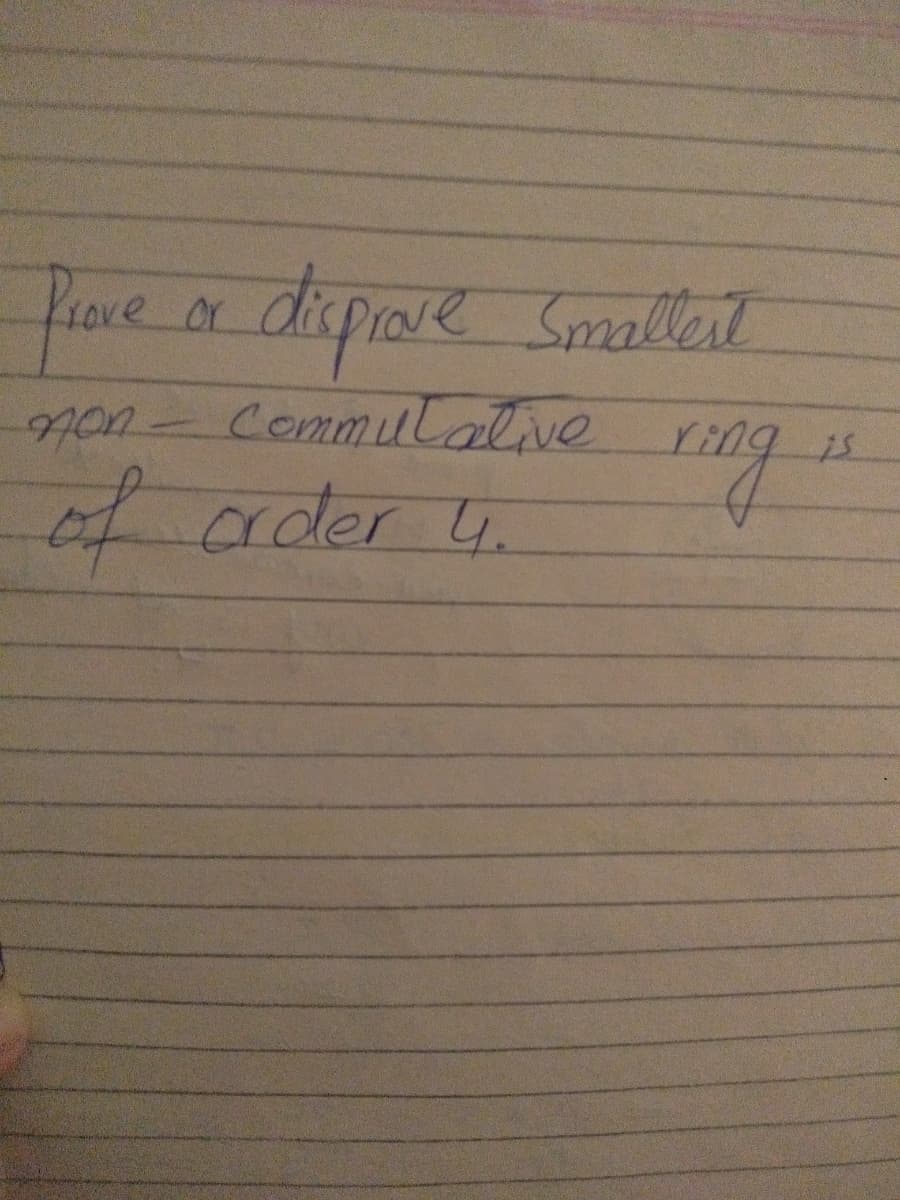 Prove or disprove Smallest
non - Commutative ring is
of order 4.